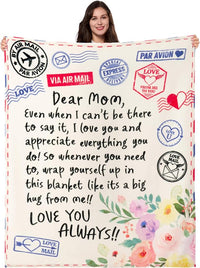 AIR MAIL
PAR AVION
VIA AIR MAIL
EXPRESS
PAR AVION
LOVE
LOVE
Dear Mom,
Even when I can't be there
to say it, I love you and
appreciate everything you
do! So whenever you need
to, wrap yourself up in
this blanket like its a big
hug from me!!
LOVE YOU
ALWAYS!!
LOVE
MAIL